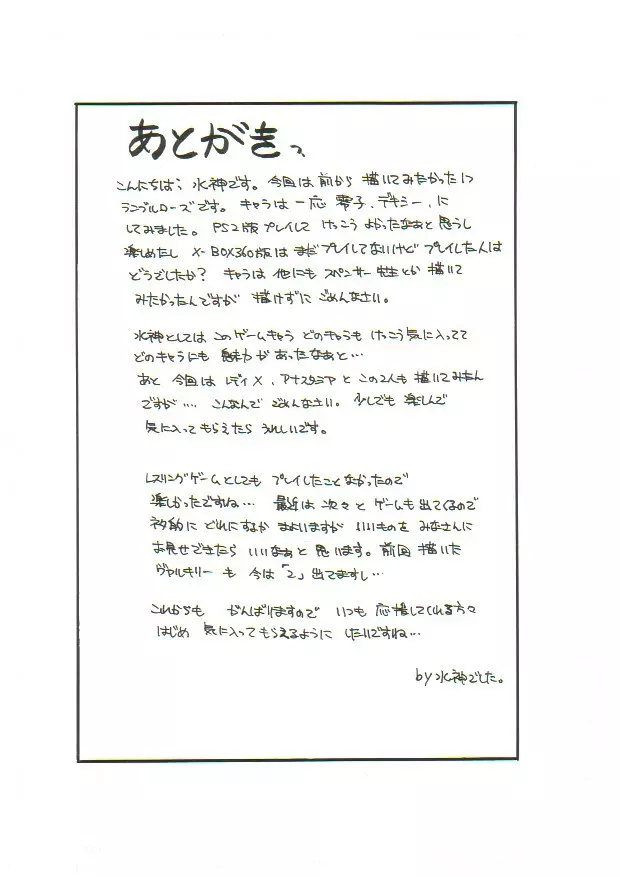 あとがきっ
こんにちは、水神です。今回は前から描いてみたかった
ランブルローズです。キャラは一応零子、デキシー、に
してみました。PS2版プレイして けっこう よかったなぁと思うし
楽しめたし X-BOX360版は まだプレイしてないけど プレイした人は
どうでしたか? キャラは他にもスペンサー先生とか描いて
みたかったんですが 描けずに ごめんなさい。
水神としては このゲームキャラ どのキャラも けっこう気に入ってて
どのキャラにも 魅力があったなぁと…
あと 今回は レディX、アナスタシアと この2人も 描いてみたん
ですが… こんなんで ごめんなさい。少しでも 楽しんで
気に入ってもらえたら うれしいです。
レスリングゲームとしても プレイしたことなかったので
楽しかったですね… 最近は 次々と ゲームも出てくるので
ネタ的に どれにするか まよいますが いいものを みなさんに
お見せできたら いいなぁと 思います。前回 描いた
ヴァルキリーも 今は「2」出てますし…
これからも がんばりますので いつも 応援してくれる方々
はじめ 気に入ってもらえるように したいですね…
by 水神でした。